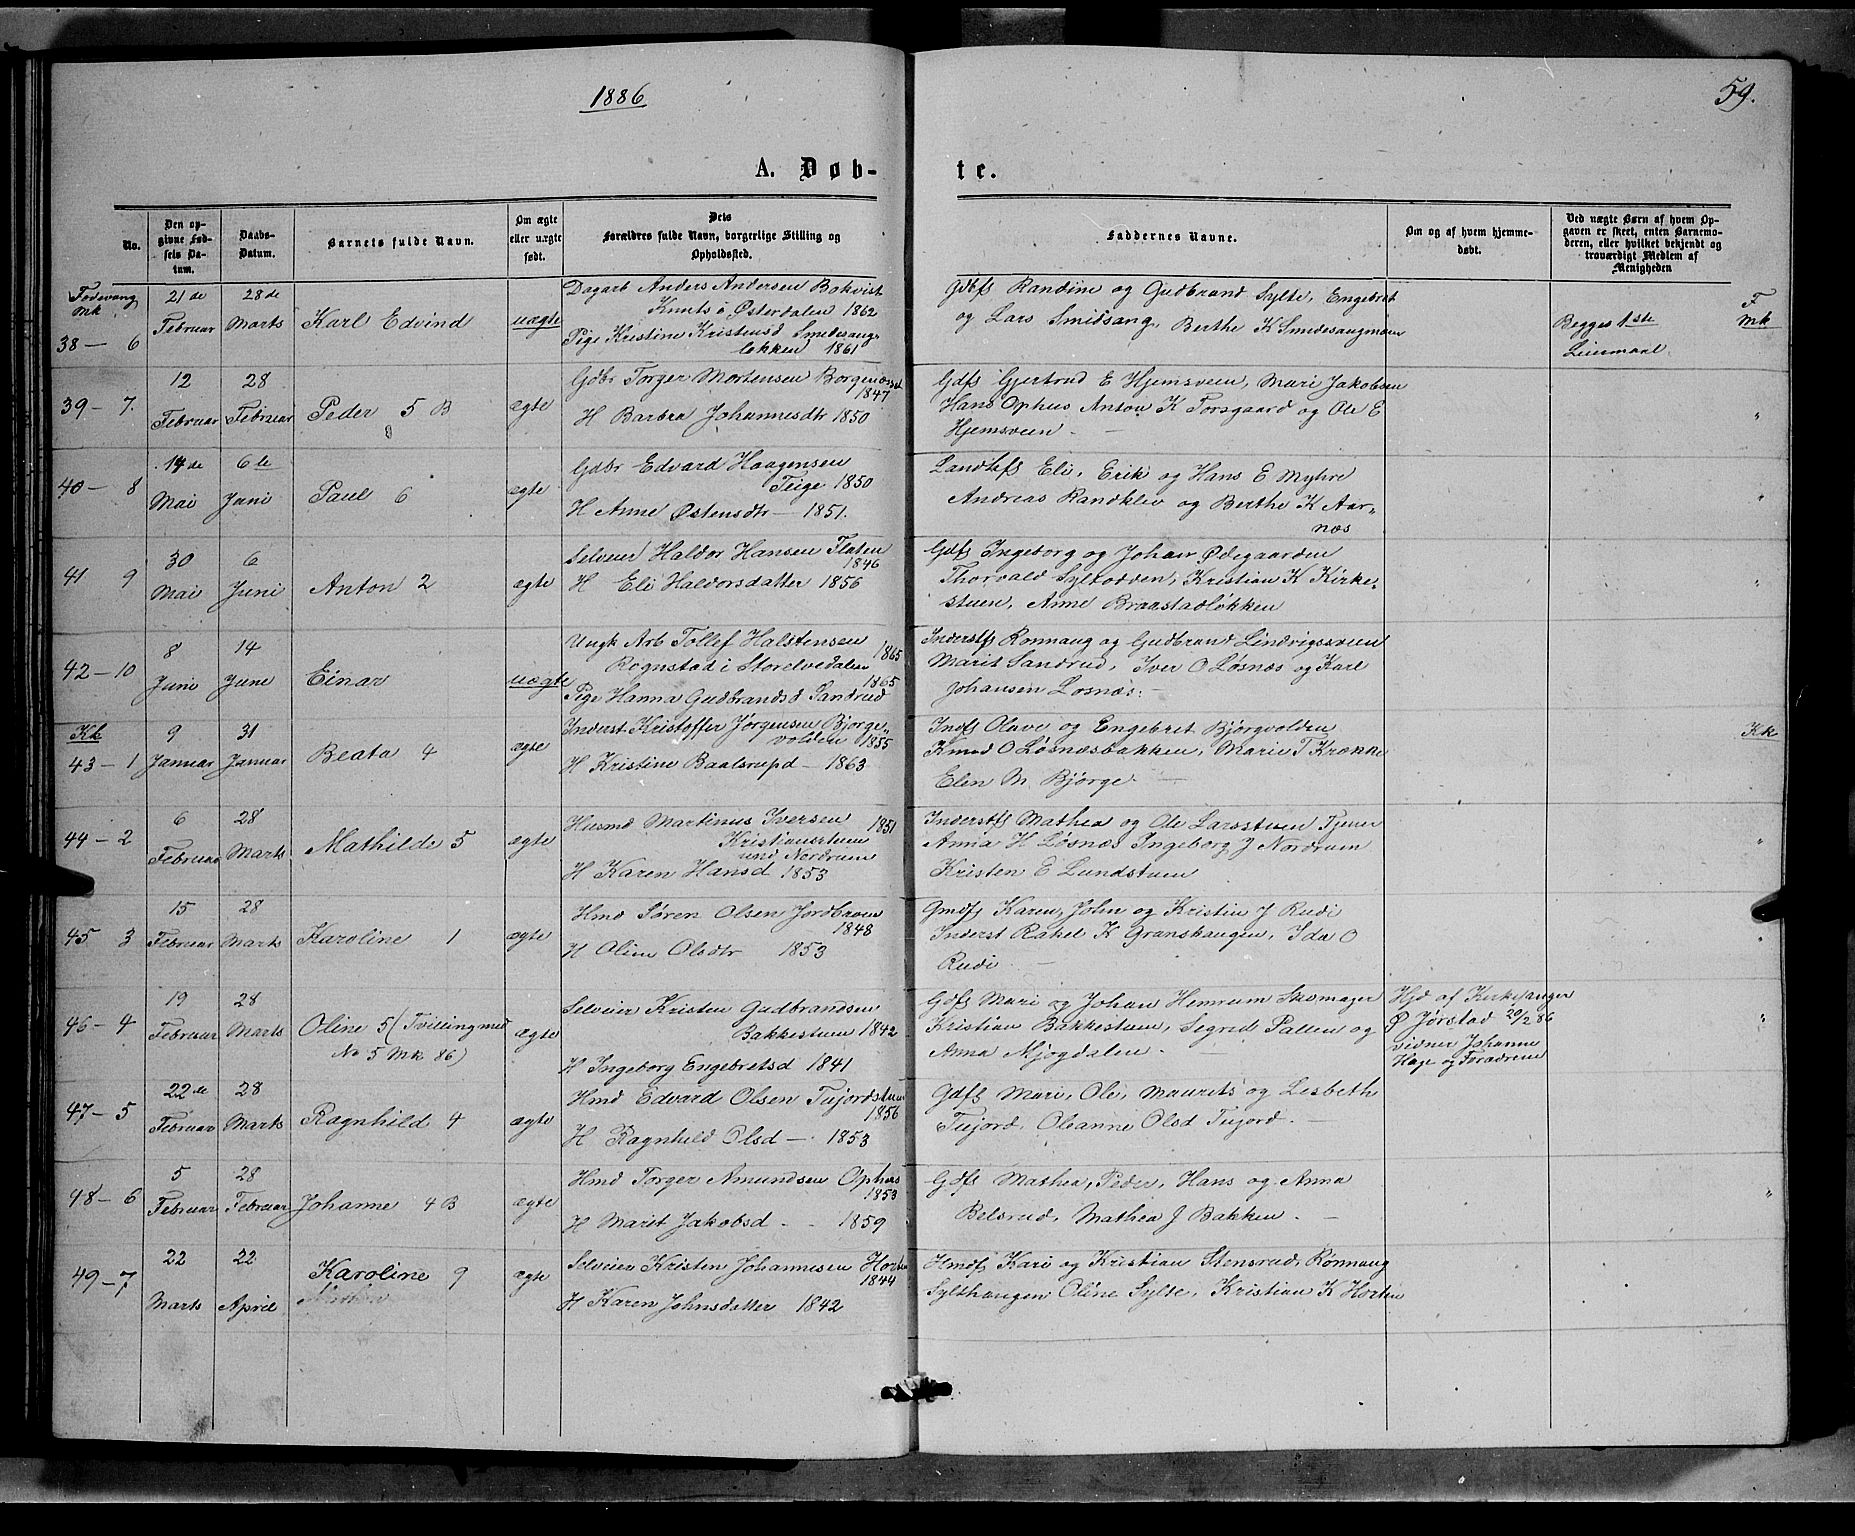 1886
59.
A. Døb-
te.
No.
Den op-
givne Fød-
sels Da-
tum.
Daabs-
Datum.
Barnets fulde Navn.
Om ægte
eller uægte
født.
Dets
Forældres fulde Navn, borgerlige Stilling og
Opholdssted.
Faddernes Navne.
Om og af hvem hjemme-
døbt.
Ved uægte Børn af hvem Op-
gaven er skeet, enten Barnemo-
deren, eller hvilket bekjendt og
troværdigt Medlem af
Menigheden
Fodevang
Mk
38 — 6
21 de
Februar
28 de
Marts
Karl Edvind
uægte
Dagarb Anders Andersen Bakvist
Knuts i Østerdalen 1862
Pige Kristine Kristensd Smedsang-
løkken 1861
Gdbfs Randine og Gudbrand Sylte, Engebret
og Lars Smidsang, Berthe K Smedsangmoen
Begges 1ste
Leiermaal
F
Mk
39 — 7.
12
Februar
28
Februar
Peder 5 B
ægte
Gdbr Torger Mortensen Borgen
1847
H Barbra Johannesdtr 1850
Gdfs Gjertrud E Hjemsveen, Mari Jakobsen
Hans Ophus Anton K Forsgaard og Ole E
Hjemsveen —
"
40 — 8
14 de
Mai
6 te
Juni
Paul 6
ægte
Gdbr Edvard Haagensen
Teige 1850
H Anne Østensdtr — 1851.
Landhfs Eli, Erik og Hans E Myhre
Andreas Randklev og Berthe K Aar-
næs
"
41 9
30
Mai
6
Juni
Anton 2
ægte
Selveier Haldor Hansen Flaten
1846
H Eli Haldorsdatter 1856
Gdfs Ingeborg og Johan Ødegaarden
Thorvald Sylterødden, Kristian K Kirke-
stuen, Anne Braastadløkken
"
42 — 10
8
Juni
14
June
Einar
uægte
Ungk Arb Tollef Halstensen
1865
Rognstad i Storelvedalen
1865
Pige Hanna Gudbrandsd Sandrud
Inderstfs Ronnaug og Gudbrand Lindvigssveen
Marit Sandrud, Iver O Løsnæs og Karl
Johansen Losnæs. —
Kk
43 — 1
9
Januar
31
Januar
Beata 4
ægte
Inderst Kristoffer Jørgensen Bjørge-
volden 1855
H Kristine Baalsrupd — 1863
Indfs Olave og Engebret Bjørgvolden
Knud O Løsnæsbakken, Marie T Krække
Elen M Bjørge. —
Kk
44 — 2
6
Februar
28
Marts
Mathilde 5
ægte
Husmd Martinus Iversen 1851
Kristianstuen
und Nordrum
H Karen Hansd 1853
Inderstfs Mathea og Ole Larsstuen Tjener
Anna H Løsnæs Ingeborg J Nordrum
Kristen E Lundstuen
"
45 3
15
Februar
28
Marts
Karoline 1
ægte
Hmd Søren Olsen Jordbroen
1848
H Oline Olsdtr 1853
Gmdfs Karen, John og Kristin J Rudi
Inderst Rakel K Granshaugen, Ida O
Rudi —
"
46 — 4
19
Februar
28
Marts
Oline 5 (Tvilling med
No 5 Mk 86)
ægte
Selveier Kristen Gudbrandsen
Bakkestuen 1842
H Ingeborg Engebretsd 1841
Gdfs Mari og Johan Hemrum Skomager
Kristian Bakkestuen, Segred Pallen og
Anna Mjogdalen. —
Hjd af Kirkesanger
Ø Jørstad 20/2 86
vidner Johanne
Hage og Foradrene
"
47 — 5
22 de
Februar
28
Marts
Ragnhild 4
ægte
Hmd Edvard Olsen Tujordstuen
1856
H Ragnhild Olsd — 1853
Gdfs Mari, Ole, Maurits og Lesbeth
Tujord, Oleanne Olsd Tujord. —
48 — 6
5
Februar
28
Februar
Johanne 4 B
ægte
Hmd Torger Amundsen Ophus
1853
H Marit Jakobsd — 1859
Gdfs Mathea, Peder, Hans og Anna
Belsrud, Mathea J Bakken. —
"
49 — 7
22
Marts
22
April
Karoline 9
ægte
Selveier Kristen Johannesen Horten
1844
H Karen Johnsdatter 1842
Hmdfs Kari og Kristian Stensrud, Rønnaug
Sylthaugen Oline Sylte, Kristian K Horten